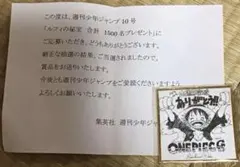 この度は、週刊少年ジャンプ10号
「ルフィの秘宝 合計 1500名プレゼント」に
ご応募いただき、どうもありがとうございます。
厳正な抽選の結果、ご当選されましたので、
賞品をお送りいたします。
今後とも週刊少年ジャンプをご愛読くださいますよう
よろしくお願いいたします。
集英社 週刊少年ジャン
ありがとう!!
ONE PIECE